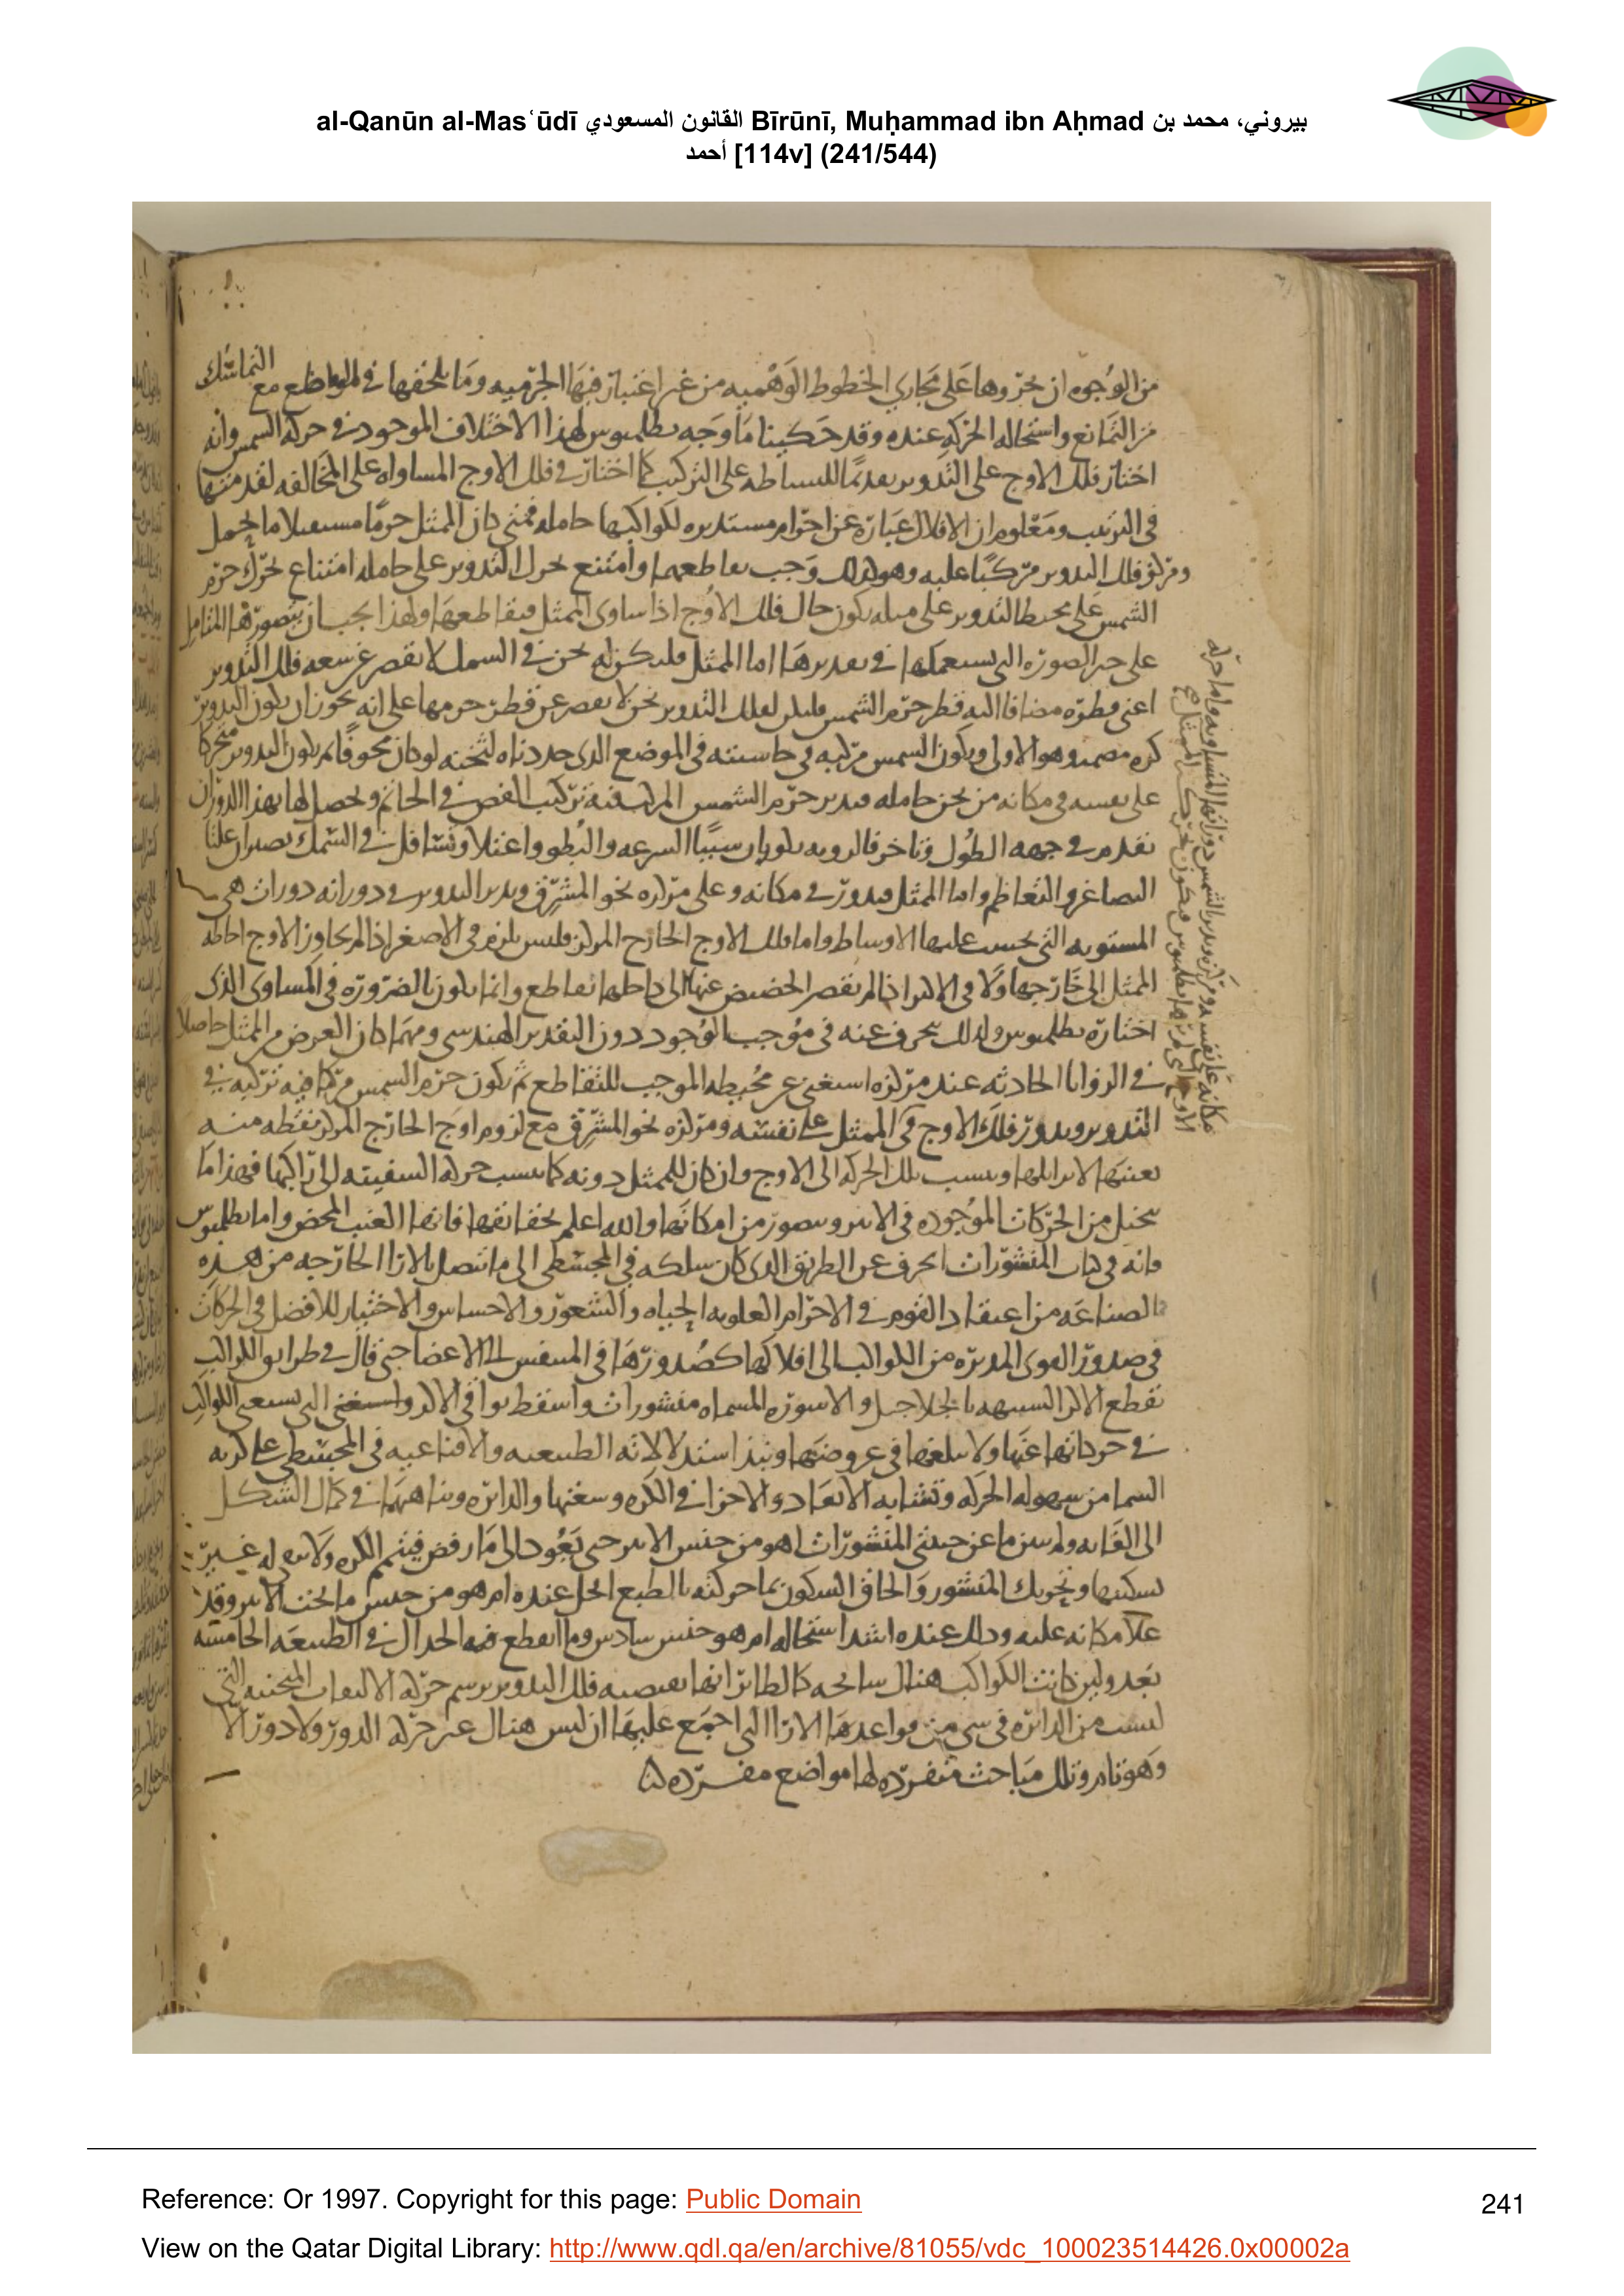 al-Qanūn al-Masʿūdī القانون المسعودي Bīrūnī, Muḥammad ibn Aḥmad بيروني، محمد بن
أحمد [114v] (241/544)
من الوجوه ان نحروها على مجاري الخطوط الوهمية من غير اعتبار فيها الجرمية وما يلحقها في المواضع مع التماسك
من التمانع واستحاله الحركه عنده وقد حكينا ما وجه بطلميوس لهذا الاختلاف الموجود في حركه الشمس وانه
اختار فلك الاوج على التدوير تقديما للبساطه على التركيب كما اختار في فلك الاوج المساواه على المخالفه لتقدمتها
في الترتيب ومعلوم ان الافلاك عبارة عن اجرام مستديره لكواكبها حامله فمتى كان الممثل جرما مستقبلا ما يحمل
ومركز فلك التدوير مركبا عليه وهو كذلك وجب تقاطعهما وامتنع تحرك التدوير على حامله امتناع تحرك جرم
الشمس على محيط التدوير على ميله يكون حال فلك الاوج اذا ساوى الممثل فتقاطعها ولهذا يجب ان يتصورها المتامل
على الصوره التي نستعملها في تقديرها اما الممثل فليكن له ثخن في السمك لا يقصر عن سعه فلك التدوير
اعني قطره مضافا اليه قطر جرم الشمس وليكن لفلك التدوير ثخن لا يقصر عن قطر جرمها على انه يجوز ان يكون التدوير
كره مصمته وهو الاولى ويكون الشمس مركبه في حاشيته في الموضع الذي حددناه لثخنه لو كان مجوفا ثم يكون التدوير متحركا
على نفسه في مكانه من ثخن حامله فيدير جرم الشمس المركب فيه تركيب الفص في الخاتم ويحصل لها بهذا الدوران
تقدم في جهه الطول وتاخر في الرويه يكونان سببا السرعه والبطو واعتلا وتسافل في السمك يصيران علتا
التصاغر والتعاظم واما الممثل فيدور في مكانه وعلى مركزه نحو المشرق ويدير التدوير في دورانه دورات هي
المستويه التي يحسب عليها الاوساط واما فلك الاوج الخارج المركز فليس يلزم في الاصغر اذا لم يجاوز الاوج احاطه
الممثل الى خارجها ولا في الاكبر اذا لم يقصر الحضيض عنها الى داخلها تقاطع وانما يكون بالضروره في المساوي الذي
اختاره بطلميوس ولذلك ينحرف عنه في موجب الوجود دون التقدير الهندسي ومهما كان الغرض من الممثل حاصلا
في الزوايا الحادثه عند مركزه استغنى عن محيطه الموجب للتقاطع ثم يكون جرم الشمس مركبا فيه تركيبه في
التدوير ويدور فلك الاوج في الممثل على نفسه ومركزه نحو المشرق مع لزوم اوج الخارج المركز نقطه منه
بعينها لا يزايلها وينسب تلك الحركه الى الاوج وان كان للممثل دونه كما ينسب حركه السفينه الى راكبها فهذا ما
يتخيل من الحركات الموجوده في الاثير ويتصور من امكانها والله اعلم بحقائقها فانها الغيب المحض واما بطلميوس
فانه في كتاب المنشورات انحرف عن الطريق الذي كان سلكه في المجسطي الى ما يتصل بالارا الخارجه من هذه
الصناعه من اعتقاد القوم في الاجرام العلويه الحياه والشعور والاحساس والاختيار للافضل في الحركات
في صدور القوى المدبره من الكواكب الى افلاكها كصدورها في المتنفس الى الاعضا حتى قال في طرايق الكواكب
بقطع الاكر الشبيهه بالخلاخل والاسوره المسماه منشورات واسقط بواقي الاكر واستغنى التي يستغنى الكواكب
في حركاتها عنها ولا يبلغها في عروضها ونبذ استدلالاته الطبيعيه والاقناعيه في المجسطي على كريه
السما من سهوله الحركه وتشابه الابعاد والاجزا في الكره وسعتها والدائره وتناهيهما في كمال الشكل
الى الغايه ولم يبين ما عن جنبتي المنشورات اهو من جنس الاثير حتى يعود الى ما رفض فيتم الكره ولا له غير
تسكينها وتحريك المنشور والحاق السكون بما حركته بالطبع انحل عنده ام هو من جنس ما تحت الاثير وقد
علا مكانه عليه وذلك عنده اشد استحاله ام هو جنس سادس وما انقطع فيه الجدال في الطبيعه الخامسه
بعد ولين كانت الكواكب هناك سابحه كالطائر انها فلك التدوير يرسم حركه الالتفات المنحنيه التي
ليست من الدائره في شي من قواعدها الارا التي اجمع عليها ان ليس هناك غير حركه الدور ولا دور الا
وهو تام وتلك مباحث منفرده لها مواضع مفرده
مكانه على نفسه ومركزه ويدير الشمس دورانها المتساويه واما حركه
الاوج التي لم يرها بطلميوس فيكون بتحرك الممثل
Reference: Or 1997. Copyright for this page: Public Domain
241
View on the Qatar Digital Library: http://www.qdl.qa/en/archive/81055/vdc_100023514426.0x00002a